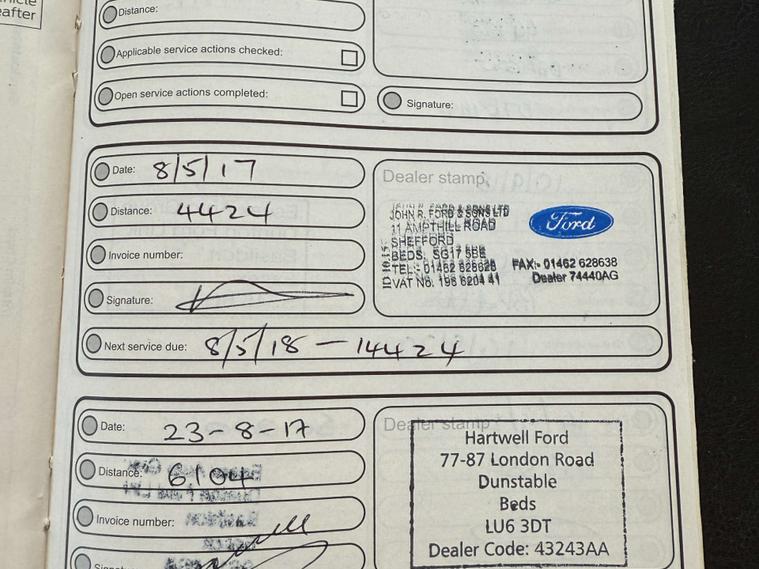 eafter
Distance:
Applicable service actions checked:
Open service actions completed:
Signature:
Date: 8/5/17
Distance: 4424
Invoice number:
Signature:
Next service due: 8/5/18 - 14424
Dealer stamp
JOHN R. FORD & SONS LTD
11 AMPTHILL ROAD
SHEFFORD
BEDS. SG17 5BE
TEL:- 01462 628628 FAX:- 01462 628638
VAT No. 196 6204 41 Dealer 74440AG
Ford
Date: 23-8-17
Distance: 6104
Invoice number:
Dealer stamp
Hartwell Ford
77-87 London Road
Dunstable
Beds
LU6 3DT
Dealer Code: 43243AA